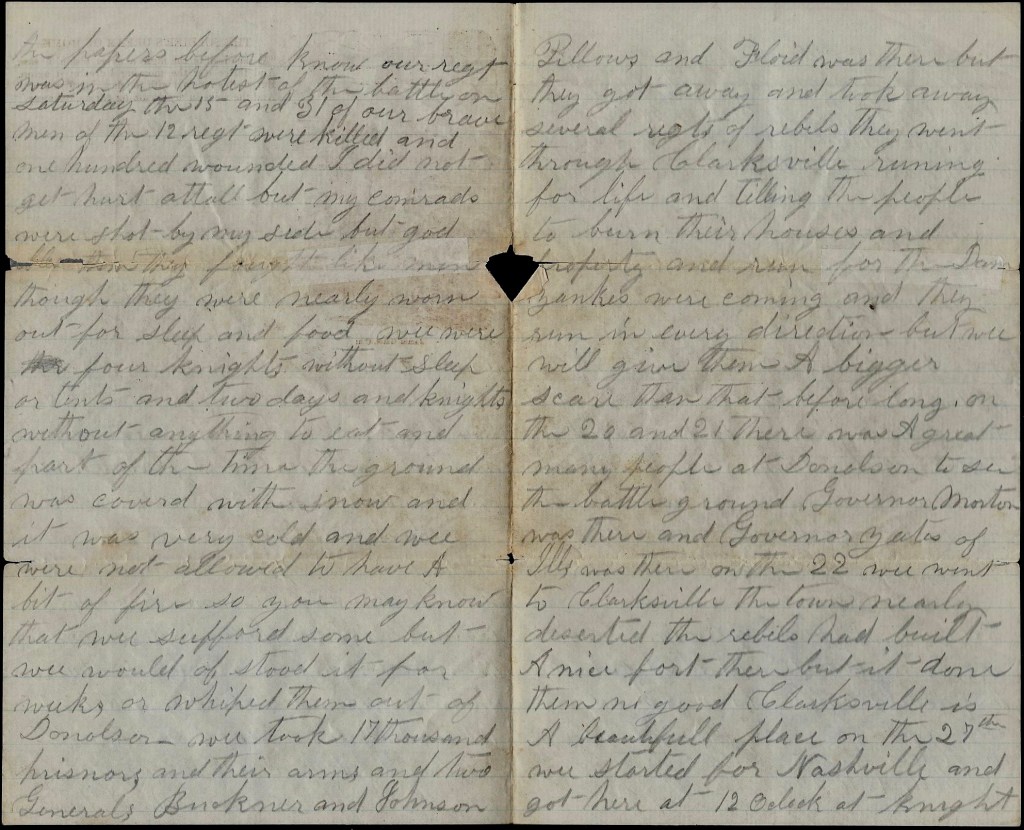 the papers before know our regt
was in the hotest of the battle on
saturday the 15 and 31 of our brave
men of the 12 regt were killed and
one hundred wounded I did not
get hurt attall but my comrads
were shot by my side but god
they fought like men
though they were nearly worn
out for sleep and food wee were
four knights without sleep
or tents and two days and knights
without anything to eat and
part of the time the ground
was coverd with snow and
it was very cold and wee
were not allowed to have A
bit of fire so you may know
that wee sufferd some but
wee would of stood it for
weeks or whiped them out of
Donolson wee took 17 thousand
prisnors and their arms and two
Generals Buckner and Johnson
Pillows and Floid was there but
they got away and took away
several regts of rebels they went
through Clarksville runing
for life and telling the people
to burn their houses and
property and run for the Dam
yankes were coming and they
run in every direction but wee
will give them A bigger
scare than that before long. on
the 20 and 21 there was A great
many people at Donolson to see
the battle ground Governor Morton
was there and Governor yates of
Ills was there on the 22 wee went
to Clarksville the town nearly
deserted the rebels had built
A nice fort there but it done
them no good Clarksville is
A beautifull place on the 27th
wee started for Nashville and
got here at 12 oclock at knight